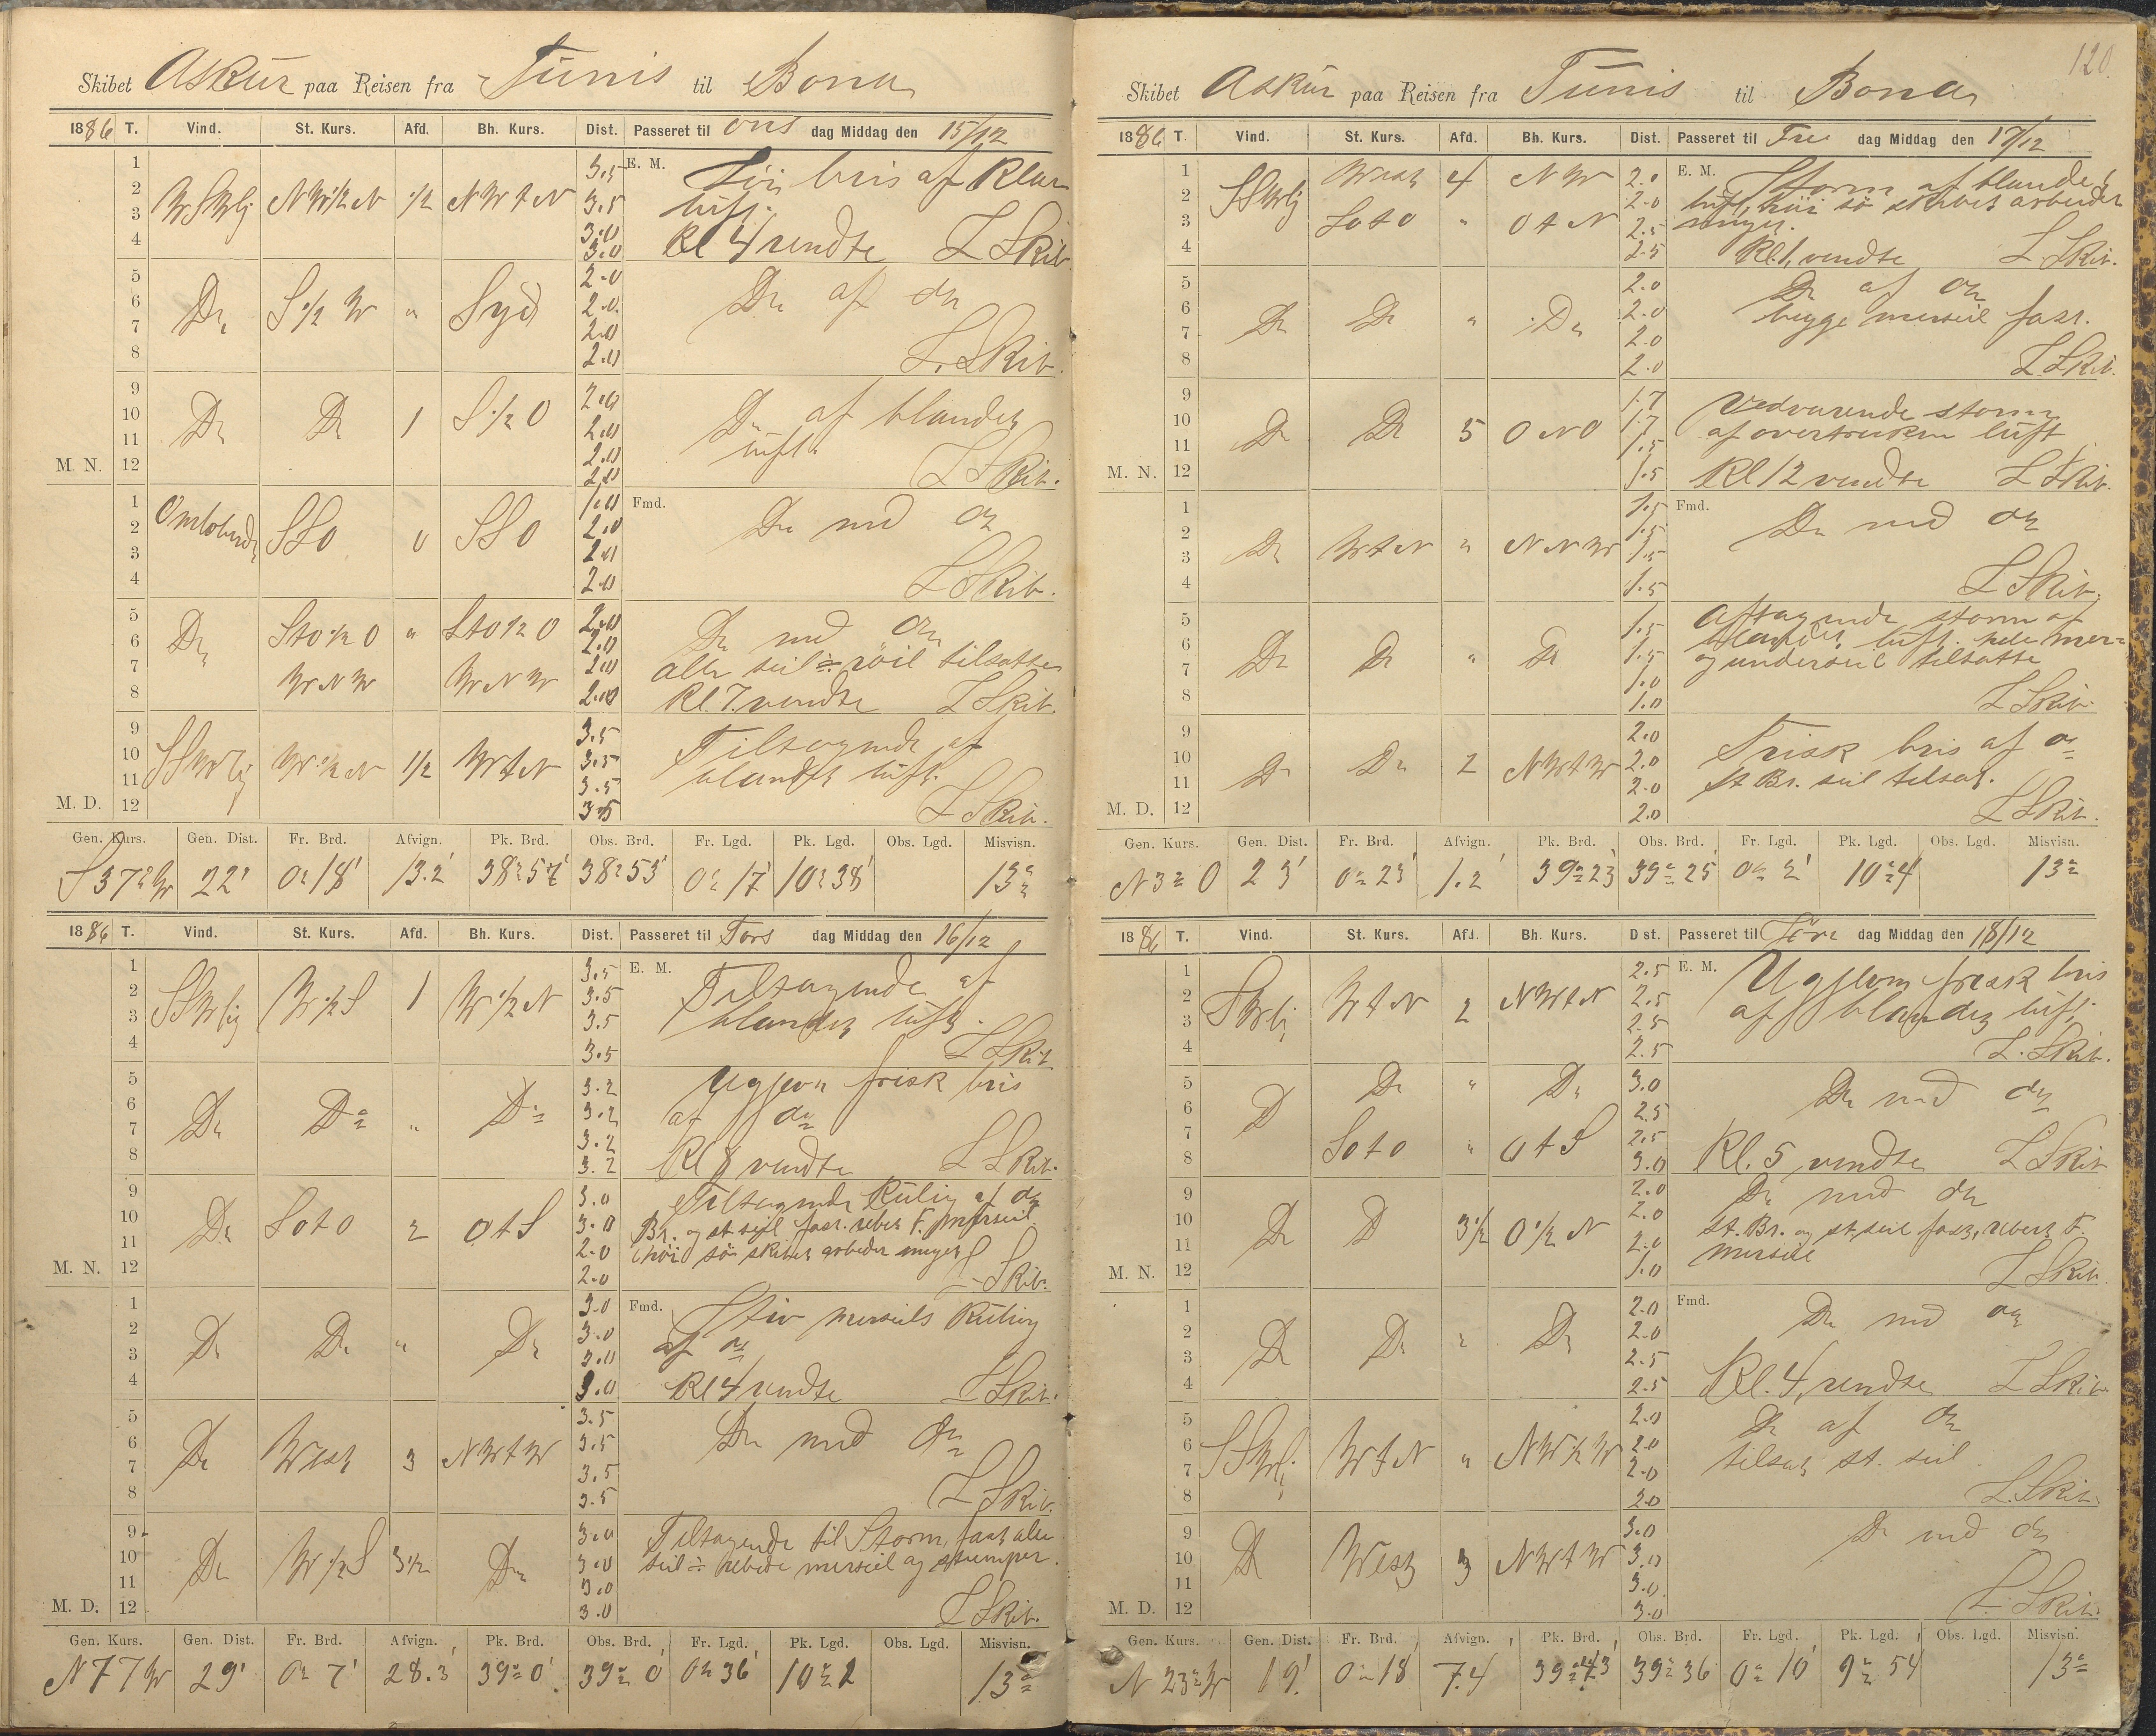 Skibet Askur paa Reisen fra Tunis til Bona
1886 T. Vind. St. Kurs. Afd. Bh. Kurs. Dist. Passeret til ons dag Middag den 15/12
1 3.5 E. M. bris af Klar
2 WSWlig NW 1/2 N 1/2 NWtN 3.5 luft.
3 3.0
4 3.0 Kl 4 vendte L Skib.
5 2.0
6 Do S 1/2 W " Syd 2.0 Do af do
7 2.0
8 2.0 L. Skib.
9 2.0
10 Do Do 1 S 1/2 O 2.0 Do af blandet
11 2.0 luft
M. N. 12 2.0 L Skib.
1 1.0 Fmd.
2 Omløbende SSO 0 SSO 2.0 Do med do
3 2.0
4 2.0 L Skib.
5 2.0
6 Do StO 1/2 O " StO 1/2 O 2.0 Do med do
7 WNW WNW 2.0 alle seil ÷ røil tilsatte
8 2.0 Kl. 7. vendte L Skib.
9 3.5
10 SSWlig W 1/2 N 1/2 WtN 3.5 Tiltagende af
11 3.5 blandet luft.
M. D. 12 3.5 L Skib.
Gen. Kurs. Gen. Dist. Fr. Brd. Afvign. Pk. Brd. Obs. Brd. Fr. Lgd. Pk. Lgd. Obs. Lgd. Misvisn.
S 37° W 22' 0° 18' 13.2' 38° 57' 38° 53' 0° 17' 10° 38' 13°
1886 T. Vind. St. Kurs. Afd. Bh. Kurs. Dist. Passeret til Tors dag Middag den 16/12
1 3.5 E. M.
2 SSWlig W 1/2 S 1 W 1/2 N 3.5 Tiltagende af
3 3.5 blandet luft.
4 3.5 L Skib
5 3.2 Ugjevn frisk bris
6 Do Do " Do 3.2 af do
7 3.2
8 3.2 Kl 8 vendte L Skib.
9 3.0 Tiltagende Kuling af do
10 Do SOtO 2 OtS 3.0 Br. og st. seil fast. rebet F. merseil
11 2.0 høi sø skibet arbeider meget
M. N. 12 2.0 L Skib.
1 3.0 Fmd. Stiv merseils Kuling
2 Do Do " Do 3.0 af do
3 3.0
4 3.0 Kl 4 vendte L Skib.
5 3.5
6 Do West 3 NWtW 3.5 Do med do
7 3.5
8 3.5 L Skib.
9 3.0 Tiltagende til Storm, fast alle
10 Do W 1/2 S 3 1/2 Do 3.0 seil ÷ rebede merseil og stumper.
11 3.0
M. D. 12 3.0 L Skib.
Gen. Kurs. Gen. Dist. Fr. Brd. Afvign. Pk. Brd. Obs. Brd. Fr. Lgd. Pk. Lgd. Obs. Lgd. Misvisn.
N 77 W 29' 0° 7' 28.3' 39° 0' 39° 0' 0° 36' 10° 2 13°
120.
Skibet Askur paa Reisen fra Tunis til Bona
1886 T. Vind. St. Kurs. Afd. Bh. Kurs. Dist. Passeret til Fre dag Middag den 17/12
1 West 4 NW 2.0 E. M. Storm af blandet
2 SSWlig 2.0 luft, høi sø skibet arbeider
3 SOtO " OtN 2.5 meget.
4 2.5 Kl. 1, vendte L. Skib.
5 2.0 Do af do
6 Do Do " Do 2.0 begge merseil fast.
7 2.0
8 2.0 L Skib.
9 1.7 Vedvarende storm
10 Do Do 5 ONO 1.7 af overtrukken luft
11 1.5
M. N. 12 1.5 Kl 12 vendte L Skib.
1 1.5 Fmd.
2 Do WtN " NNW 1.5 Do med do
3 1.5
4 1.5 L Skib.
5 1.5 Aftagende storm af
6 Do Do " Do 1.5 blandet luft. hele mer-
7 1.0 og underseil tilsatte
8 1.0 L Skib.
9 2.0
10 Do Do 2 NWtW 2.0 Frisk bris af do
11 2.0 St Br. seil tilsat.
M. D. 12 2.0 L Skib.
Gen. Kurs. Gen. Dist. Fr. Brd. Afvign. Pk. Brd. Obs. Brd. Fr. Lgd. Pk. Lgd. Obs. Lgd. Misvisn.
N 3° O 23' 0° 23' 1.2' 39° 23' 39° 25' 0° 2' 10° 4 13°
1886 T. Vind. St. Kurs. Afd. Bh. Kurs. Dist. Passeret til Lør dag Middag den 18/12
1 2.5 E. M. Ugjevn frisk bris
2 SWlig WtN 2 NWtN 2.5 af blandet luft,
3 2.5
4 2.5 L. Skib.
5 Do " Do 3.0
6 D 2.5 Do med do
7 SOtO " OtS 2.5
8 3.0 Kl. 5 vendte L Skib
9 2.0 Do med do
10 Do D 3 1/2 O 1/2 N 2.0 st. Br. og st. seil fast, rebet F.
11 2.0 merseil
M. N. 12 1.0 L Skib.
1 2.0 Fmd.
2 Do Do " Do 2.0 Do med do
3 2.5
4 2.5 Kl. 4, vendte L Skib.
5 2.0 Do af do
6 SSWlig WtN " NW 1/2 W 2.0 tilsat st. seil
7 2.0
8 2.0 L. Skib.
9 3.0 Do med do
10 Do West 3 NWtW 3.0
11 3.0
M. D. 12 3.0 L. Skib.
Gen. Kurs. Gen. Dist. Fr. Brd. Afvign. Pk. Brd. Obs. Brd. Fr. Lgd. Pk. Lgd. Obs. Lgd. Misvisn.
N 23° W 19' 0° 18' 7.4 39° 43 39° 36 0° 10' 9° 54 13°